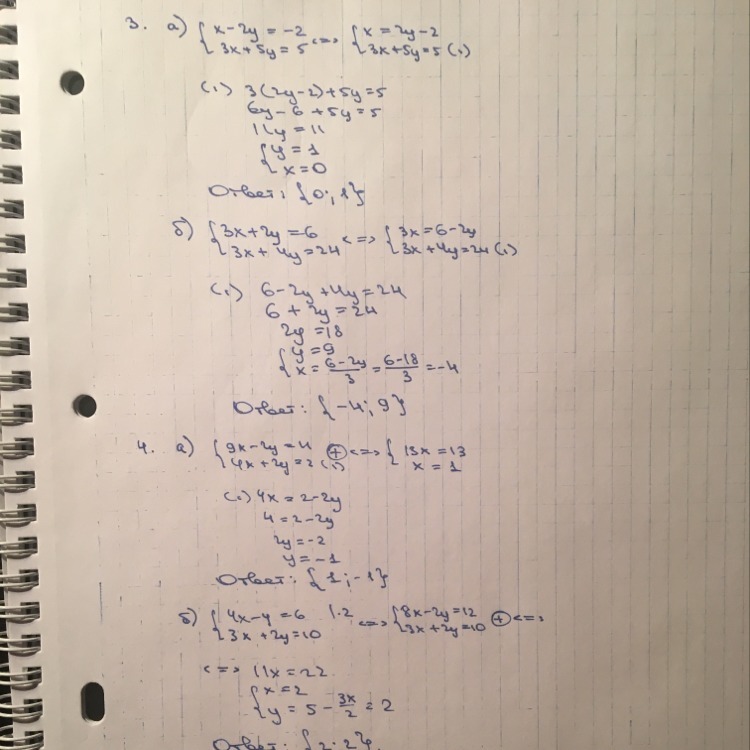 3. а) {x-2y=-2 <=> {x=2y-2
{3x+5y=5 {3x+5y=5 (1)
(1) 3(2y-2)+5y=5
6y-6+5y=5
11y=11
{y=1
{x=0
Ответ: {0; 1}
б) {3x+2y=6 <=> {3x=6-2y
{3x+4y=24 {3x+4y=24 (1)
(1) 6-2y+4y=24
6+2y=24
2y=18
{y=9
{x=(6-2y)/3=(6-18)/3=-4
Ответ: {-4; 9}
4. а) {9x-2y=11 ⊕ <=> {13x=13
{4x+2y=2 (1) {x=1
(1) 4x=2-2y
4=2-2y
2y=-2
y=-1
Ответ: {1; -1}
б) {4x-y=6 |·2 <=> {8x-2y=12 ⊕ <=>
{3x+2y=10 {3x+2y=10
<=> 11x=22
{x=2
{y=5-3x/2=2
Ответ: {2; 2}.